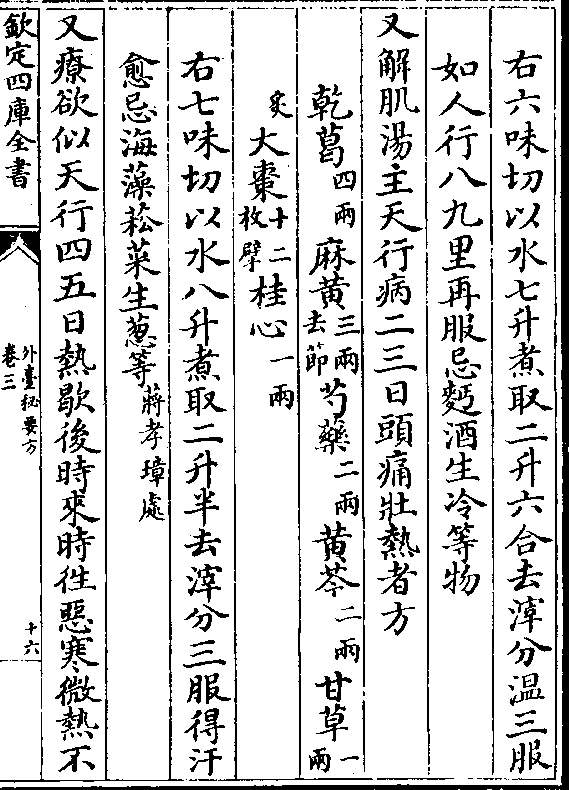 右六味切以水七升煮取二升六合去滓分温三服
如人行八九里再服忌麪酒生冷等物
又解肌湯主天行病二三日頭痛壯熱者方
乾葛四兩麻黄三兩去節芍藥二兩黄芩二兩甘草一兩
炙大棗十二枚擘桂心一兩
右七味切以水八升煮取二升半去滓分三服得汗
愈忌海藻菘菜生葱等蔣孝璋處
又療欲似天行四五日熱歇後時來時徃惡寒微熱不
欽定四庫全書
外臺秘要方
卷三
十六